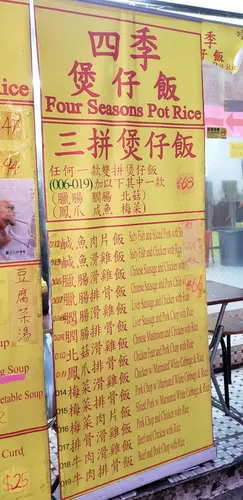 四季
煲仔飯
Four Seasons Pot Rice
三拼煲仔飯
任何一款雙拼煲仔飯
(006-019)加以下其中一款
(臘腸 膶腸 北菇)
(鳳爪 咸魚 梅菜)
$68
鹹魚肉片飯 Salty Fish and Sliced Pork with Rice
鹹魚滑雞飯 Salty Fish and Chicken with Rice
臘腸滑雞飯 Chinese Sausage and Chicken with Rice
臘腸排骨飯 Chinese Sausage and Pork Chop with Rice
膶腸滑雞飯 Liver Sausage and Chicken with Rice
膶腸排骨飯 Liver Sausage and Pork Chop with Rice
北菇滑雞飯 Chinese Mushroom and Chicken with Rice
鳳爪排骨飯 Chicken Feet and Pork Chop with Rice
014 梅菜滑雞飯 Chicken w/ Marinated White Cabbage & Rice
015 梅菜排骨飯 Pork Chop w/ Marinated White Cabbage & Rice
016 梅菜肉片飯 Sliced Pork w/ Marinated White Cabbage & Rice
017 排骨滑雞飯 Pork Chop and Chicken with Rice
018 牛肉滑雞飯 Beef and Chicken with Rice
019 牛肉排骨飯 Beef and Pork Chop with Rice
Rice
豆腐菜湯
Soup
Soup
Curd
$25
四季